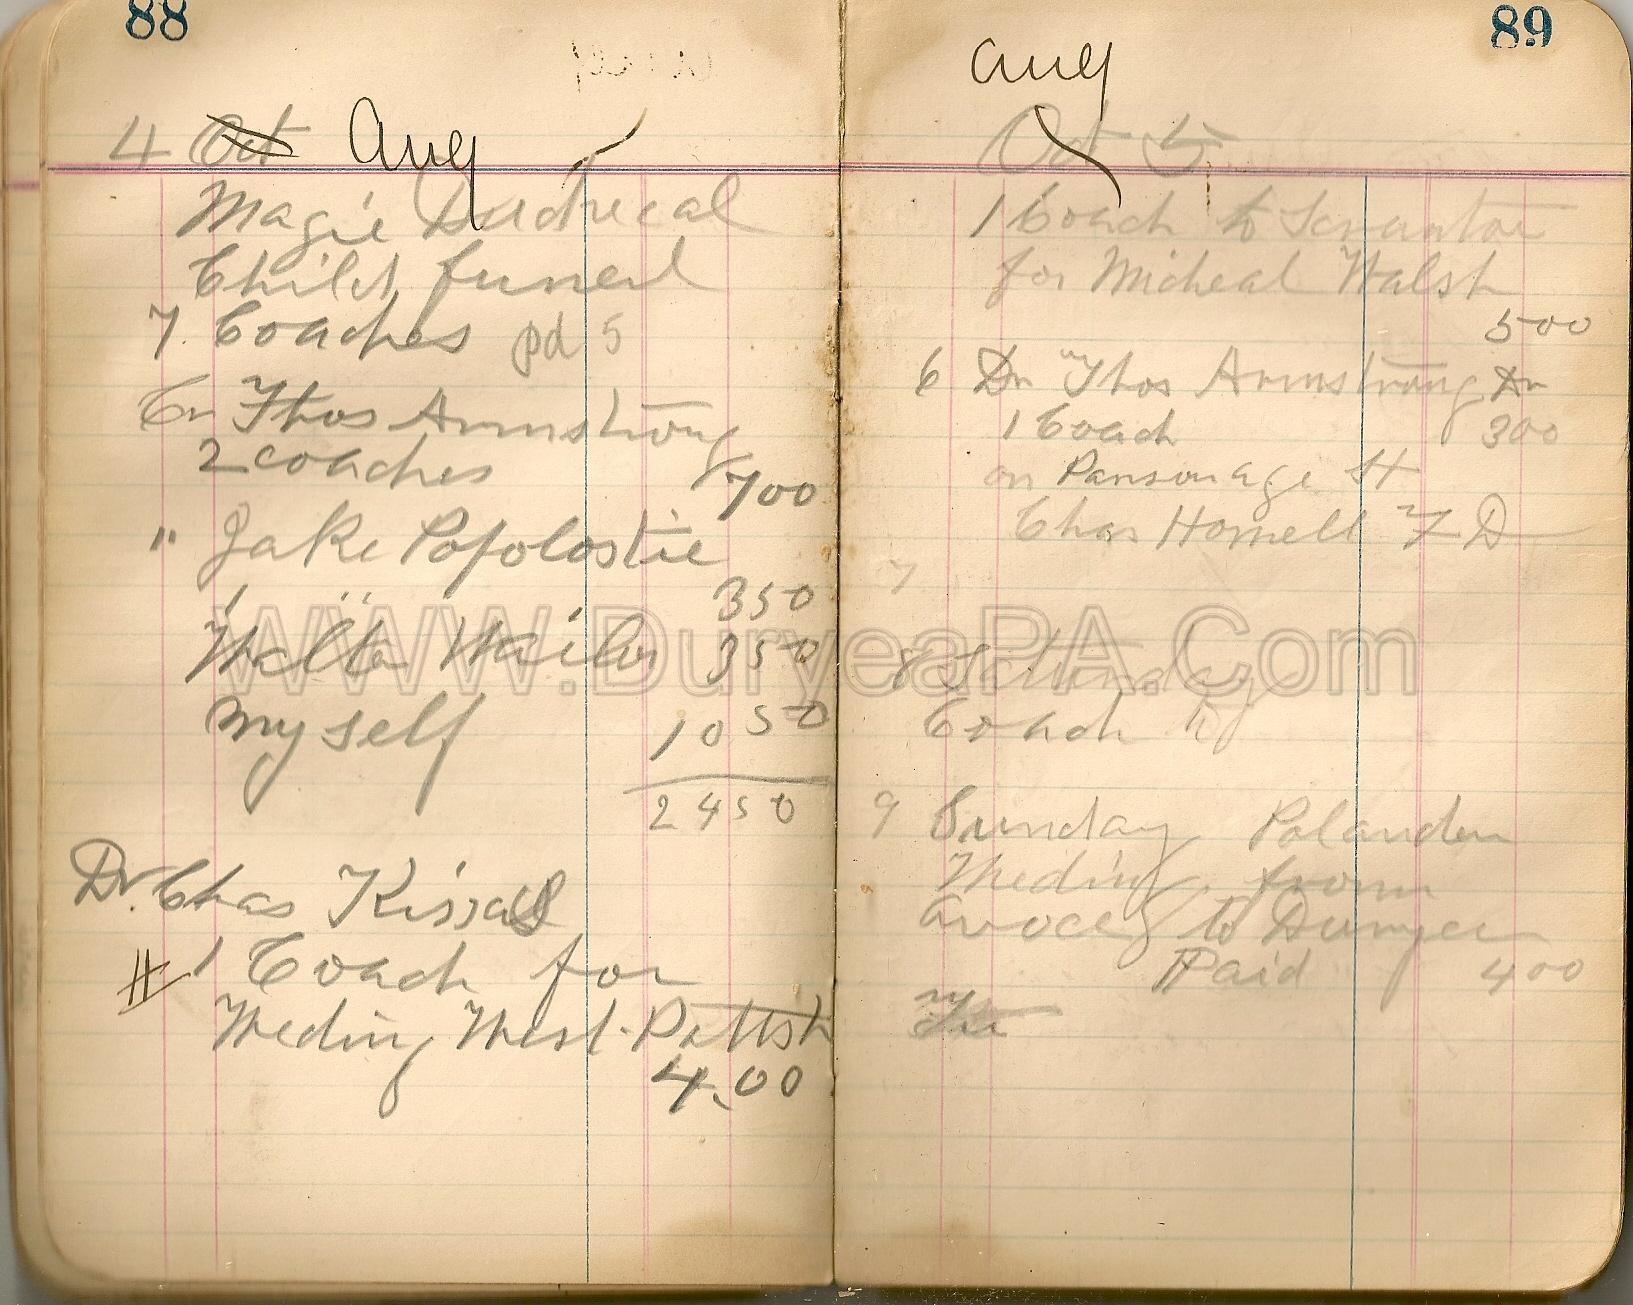 88
4 Oct Aug
Magie
Child funerl
7 Coaches pd 5
Cr Thos Armstrong
2 coaches 700
" Jake Popolostie
1 " 350
Walter 350
my self 1050
2450
Dr. Chas
1 Coach for
Weding West Pittst
4.00
89
Aug
Oct 5
1 Coach to Scranton
for Micheal Walsh
500
6 Dr Thos Armstrong Dr
1 Coach 300
on Parsonage St
Chas Howell F D
7
8 Saturday
Coach
9 Sunday Polander
Weding from
Avoca to Duryea
Paid 400
WWW.DuryeaPA.Com